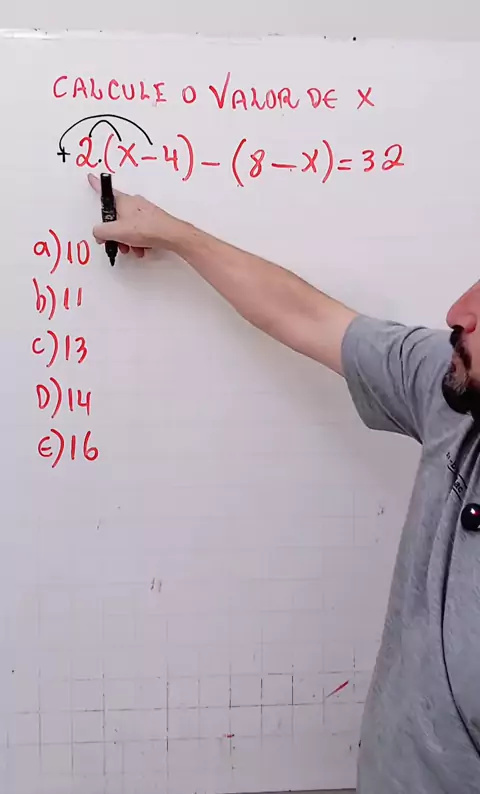 CALCULE O VALOR DE X
+2.(x-4)-(8-x)=32
a)10
b)11
c)13
D)14
E)16